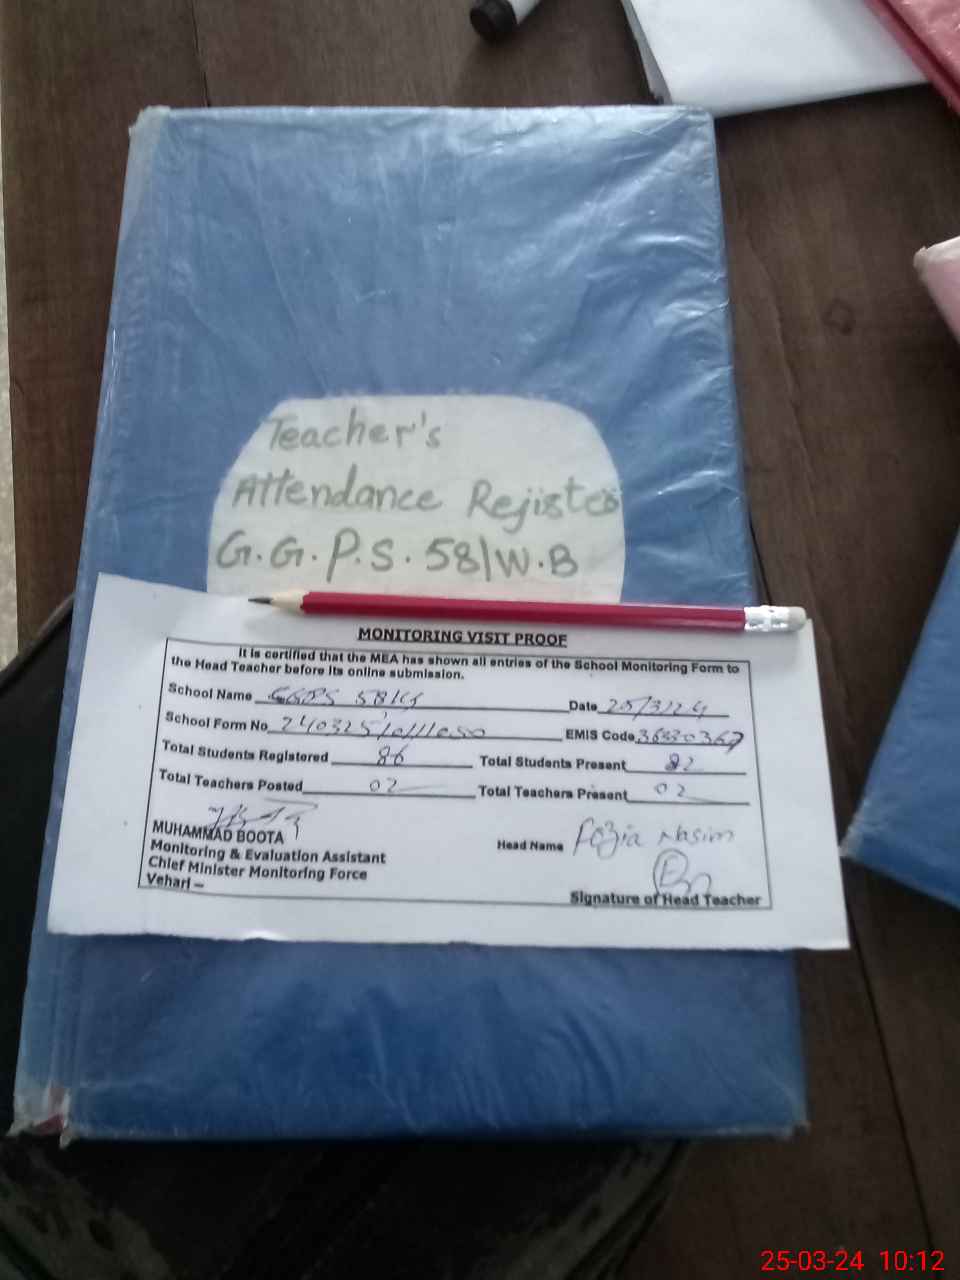 Teacher's
Attendance Rejister
G.G.P.S. 58/W.B
MONITORING VISIT PROOF
It is certified that the MEA has shown all entries of the School Monitoring Form to
the Head Teacher before its online submission.
School Name GGPS 58 Date 25/3/24
School Form No EMIS Code
Total Students Registered 86 Total Students Present 82
Total Teachers Posted 02 Total Teachers Present 02
MUHAMMAD BOOTA
Monitoring & Evaluation Assistant
Chief Minister Monitoring Force
Vehari –
Head Name Fozia Nasim
Signature of Head Teacher
25-03-24 10:12